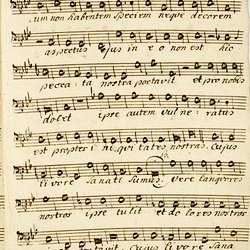 um non habentem speciem neque decorem
aspectus ejus in e o non est hic
pecca ta nostra portavit et pro nobis
dolet ipse autem vulne ratus
est propter i ni qui tates nostras, Cujus
li vore sanati sumus, Vere languores
nostros ipse tulit et do lores nostros
portavit Cujus li vore sana